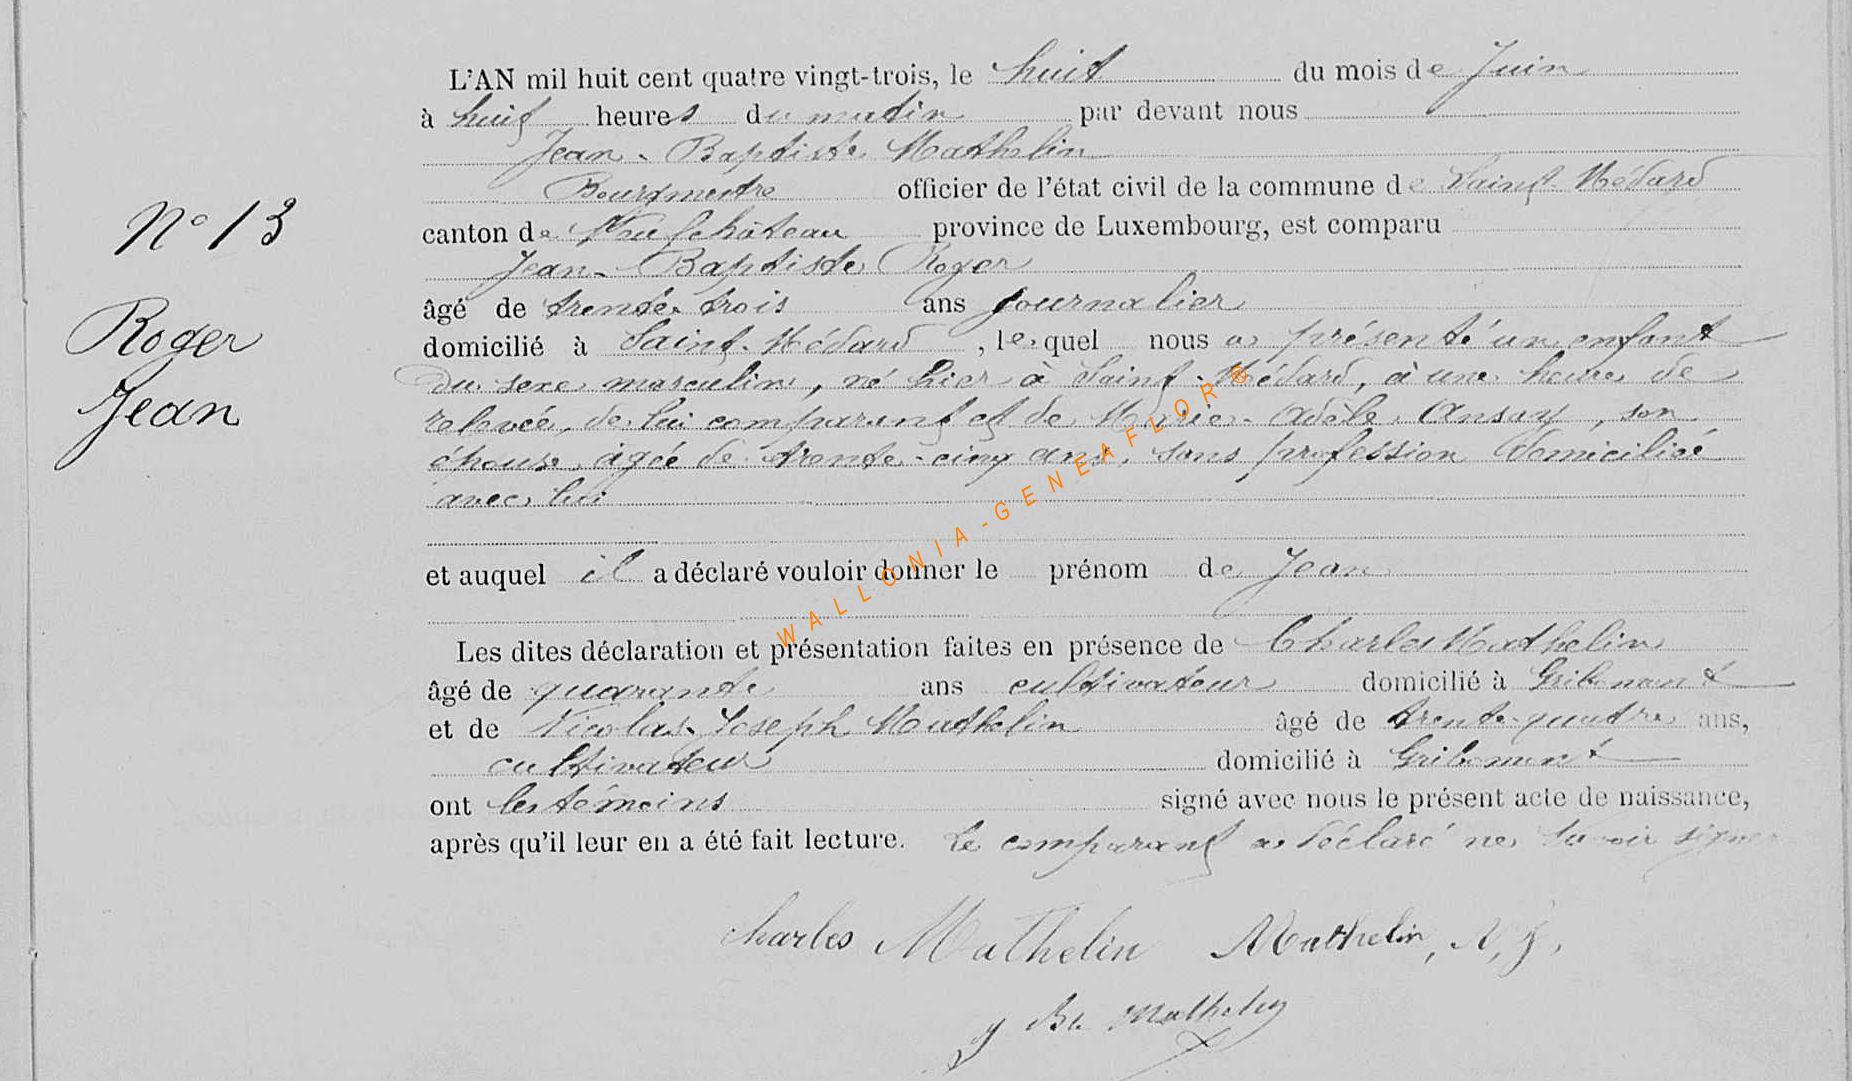 L'AN mil huit cent quatre vingt-trois, le huit du mois de Juin
à huit heures du matin par devant nous
Jean-Baptiste Mathelin
Bourgmestre officier de l'état civil de la commune de Saint-Médard
canton de Neufchâteau province de Luxembourg, est comparu
Jean-Baptiste Roger
âgé de trente-trois ans journalier
domicilié à Saint-Médard, lequel nous a présenté un enfant
du sexe masculin, né hier à Saint-Médard, à une heure de
relevée, de lui comparant et de Marie-Adèle Ansay, son
épouse, âgée de trente-cinq ans, sans profession domiciliée
avec lui
et auquel il a déclaré vouloir donner le prénom de Jean
Les dites déclaration et présentation faites en présence de Charles Mathelin
âgé de quarante ans cultivateur domicilié à Gribomont
et de Nicolas-Joseph Mathelin âgé de trente-quatre ans,
cultivateur domicilié à Gribomont
ont les témoins signé avec nous le présent acte de naissance,
après qu'il leur en a été fait lecture. Le comparant a déclaré ne savoir signer
Charles Mathelin Mathelin, N, J,
J Bte Mathelin
N° 13
Roger
Jean
WALLONIA-GENEAFLOR®